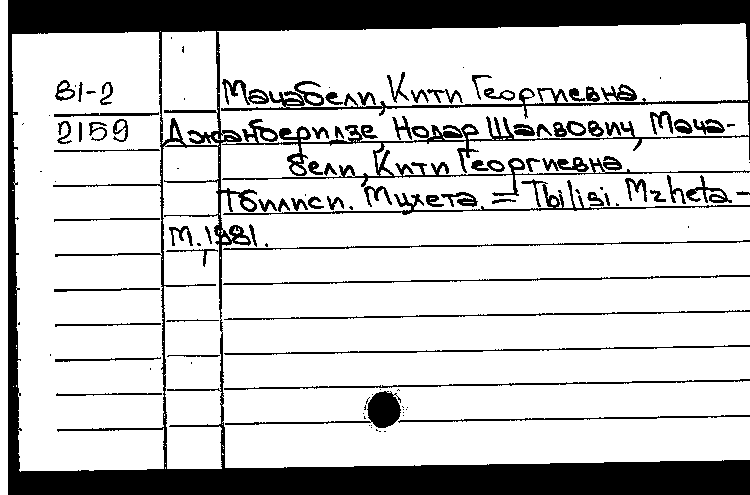 81-2 Мачабели, Кити Георгиевна.
2159 Джанберидзе, Нодар Шалвович, Мача-
бели, Кити Георгиевна.
Тбилиси. Мцхета. = Tbilisi. Mzheta -
М., 1981.